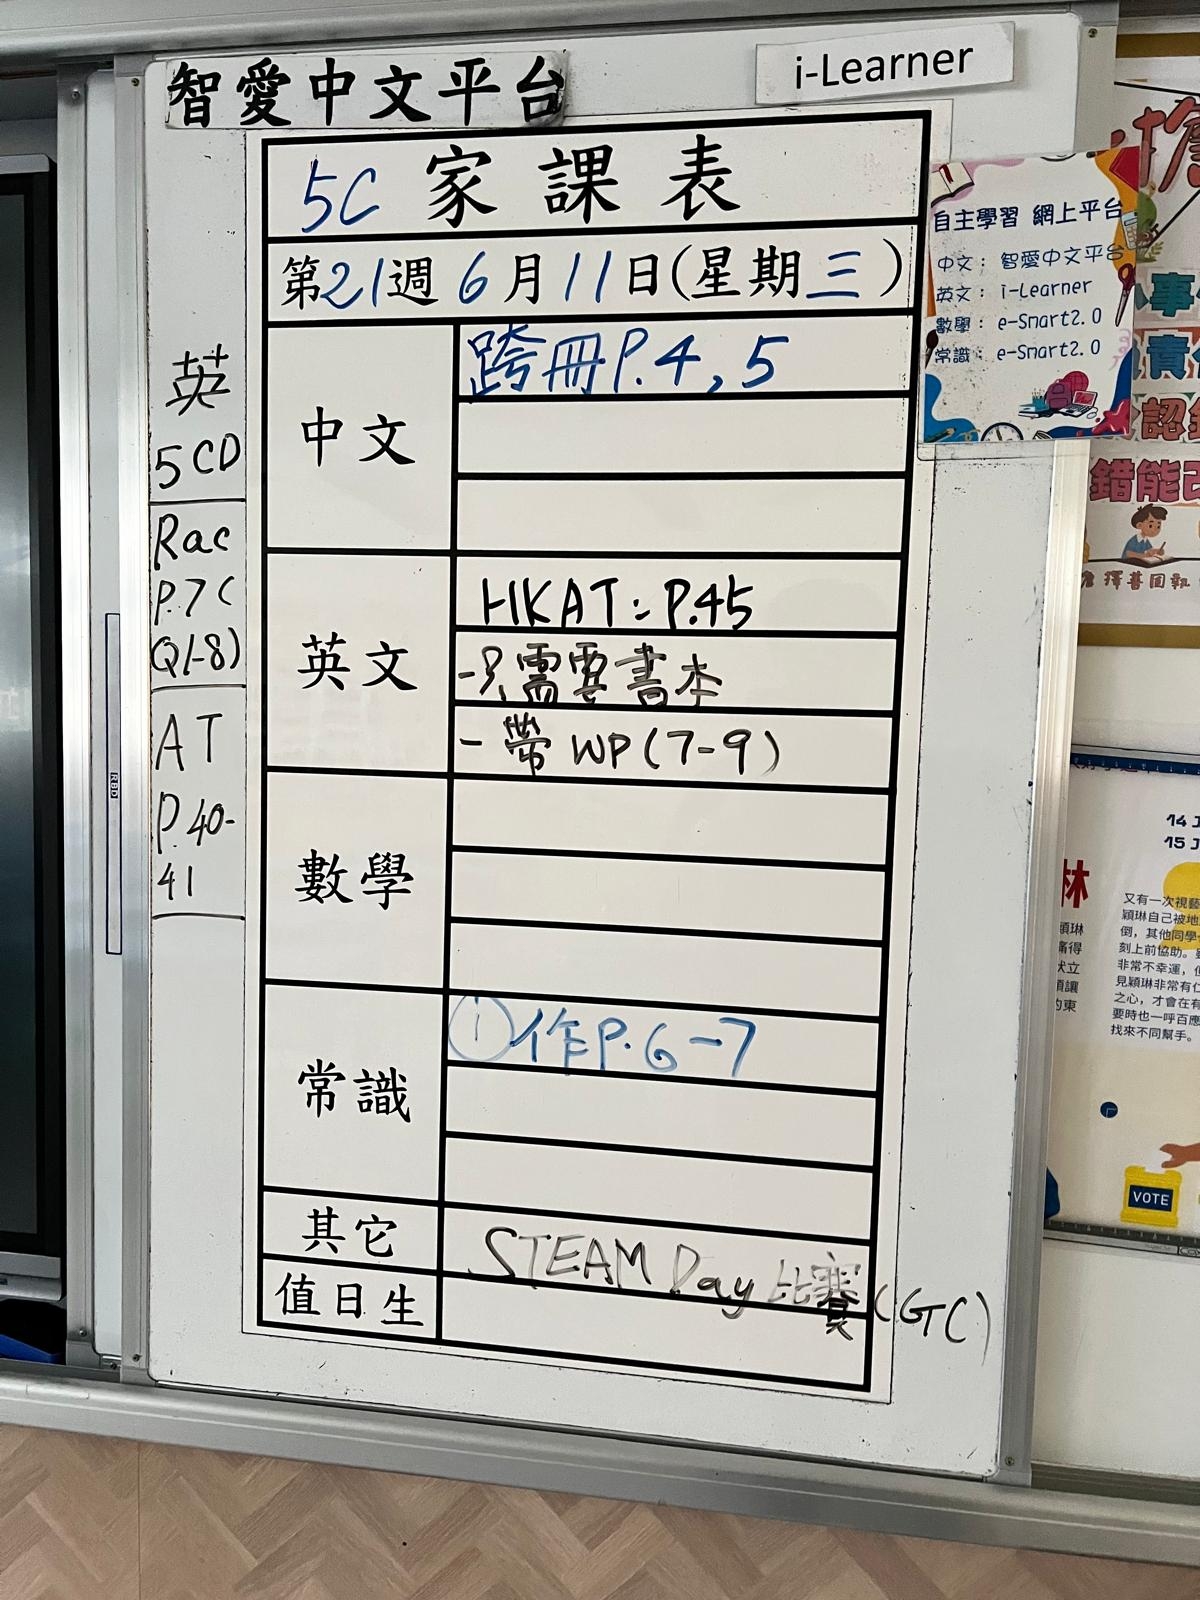 智愛中文平台
i-Learner
5C 家課表
第21週 6月11日(星期三)
中文
跨冊P.4,5
英文
HKAT: P.45
-只需要書本
- 帶 WP(7-9)
數學
常識
① 作P.6-7
其它
STEAM Day 比賽(GTC)
值日生
英
5CD
Rac
P.7C
Q1-8)
AT
P.40-
41
RBD
自主學習 網上平台
中文: 智愛中文平台
英文: i-Learner
數學: e-Smart2.0
常識: e-Smart2.0
事
責
認錯
錯能改
擇善固執
14 J
15 J
林
又有一次視藝
穎琳自己被地
倒,其他同學
刻上前協助。
非常不幸運,但
見穎琳非常有仁
之心,才會在有
要時也一呼百應
找來不同幫手。
穎琳
痛得
伏立
須讓
的東
VOTE